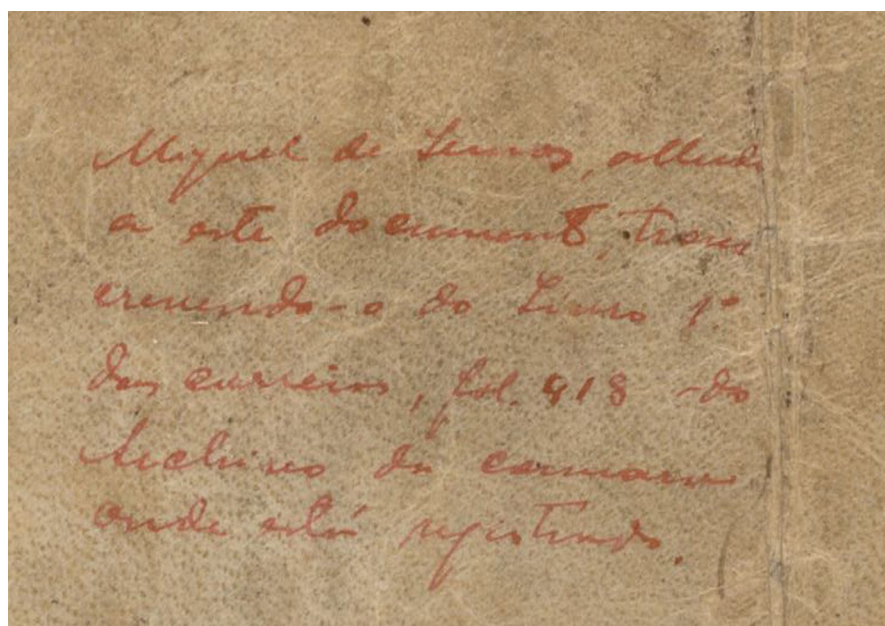 Miguel de Lemos, allude
a este documento, trans
crevendo-o do Livro 1º
das correias, fol. 418 do
Archivo da camara
onde está registrado.